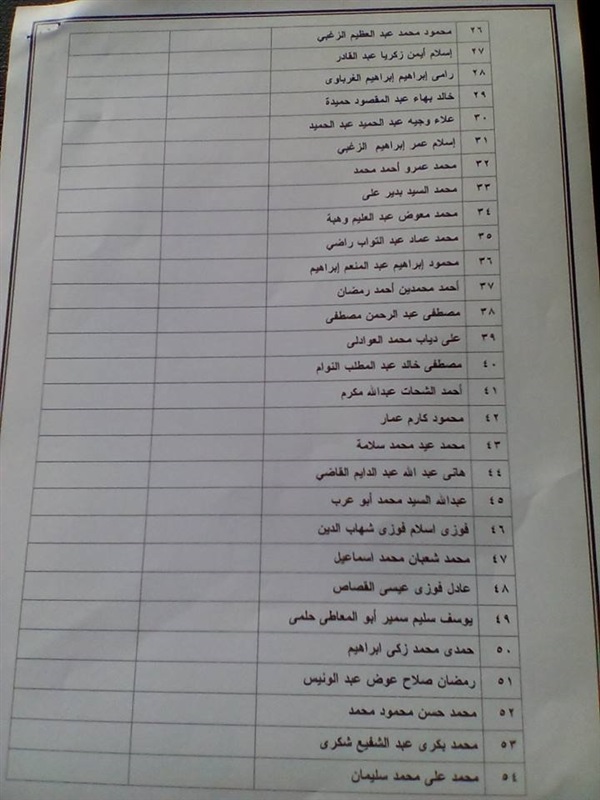 ٢٦ محمود محمد عبد العظيم الزغبي
٢٧ إسلام أيمن زكريا عبد القادر
٢٨ رامى إبراهيم إبراهيم الغرباوى
٢٩ خالد بهاء عبد المقصود حميدة
٣٠ علاء وجيه عبد الحميد عبد الحميد
٣١ إسلام عمر إبراهيم الزغبي
٣٢ محمد عمرو أحمد محمد
٣٣ محمد السيد بدير على
٣٤ محمد معوض عبد العليم وهبة
٣٥ محمد عماد عبد التواب راضي
٣٦ محمود إبراهيم عبد المنعم إبراهيم
٣٧ أحمد محمدين أحمد رمضان
٣٨ مصطفى عبد الرحمن مصطفى
٣٩ على دياب محمد العوادلى
٤٠ مصطفى خالد عبد المطلب النوام
٤١ أحمد الشحات عبدالله مكرم
٤٢ محمود كارم عمار
٤٣ محمد عيد محمد سلامة
٤٤ هانى عبد الله عبد الدايم القاضي
٤٥ عبدالله السيد محمد أبو عرب
٤٦ فوزى اسلام فوزى شهاب الدين
٤٧ محمد شعبان محمد اسماعيل
٤٨ عادل فوزى عيسى القصاص
٤٩ يوسف سليم سمير أبو المعاطى حلمى
٥٠ حمدى محمد زكى ابراهيم
٥١ رمضان صلاح عوض عبد الونيس
٥٢ محمد حسن محمود محمد
٥٣ محمد بكرى عبد الشفيع شكرى
٥٤ محمد على محمد سليمان